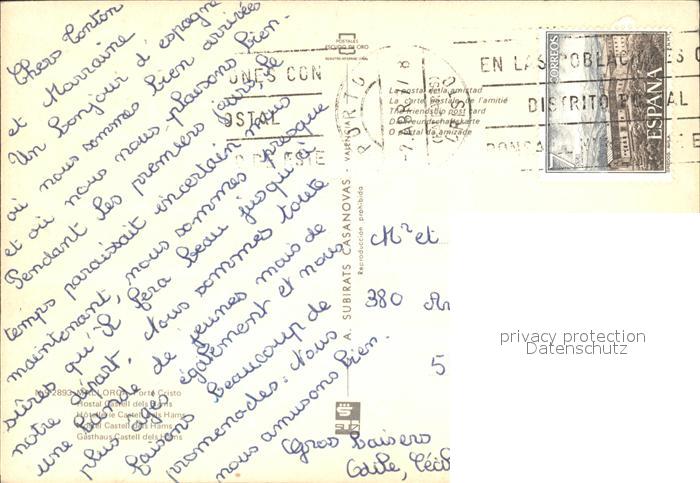 Chers Tonton
et Marraine
Un bonjour d'espagne
où nous sommes bien arrivées
et où nous nous plaisons bien.
Pendant les premiers jours, le
temps paraissait incertain mais
maintenant, nous sommes presque
sûres qu'il fera beau jusqu'à
notre départ. Nous sommes toute
une bande de jeunes mais de
plus âgés également et nous
faisons beaucoup de
promenades. Nous
nous amusons bien.
Gros baisers
Odile, Céci
POSTALES
ESCUDO DE ORO
La postal de la amistad
La carte postale de l'amitié
The friendship post card
Die Freundschaftskarte
O postal da amizade
A. SUBIRATS CASANOVAS - VALENCIA
Reproducción prohibida
CORREOS
ESPAÑA
7
EN LAS POBLACIONES
DISTRITO POSTAL
ONES CON
OSTAL
ESTE
Mr et
380
5
2893 MALLORCA Porto Cristo
Hostal Castell dels Hams
Hôtellerie Castell dels Hams
Hotel Castell dels Hams
Gasthaus Castell dels Hams
privacy protection
Datenschutz